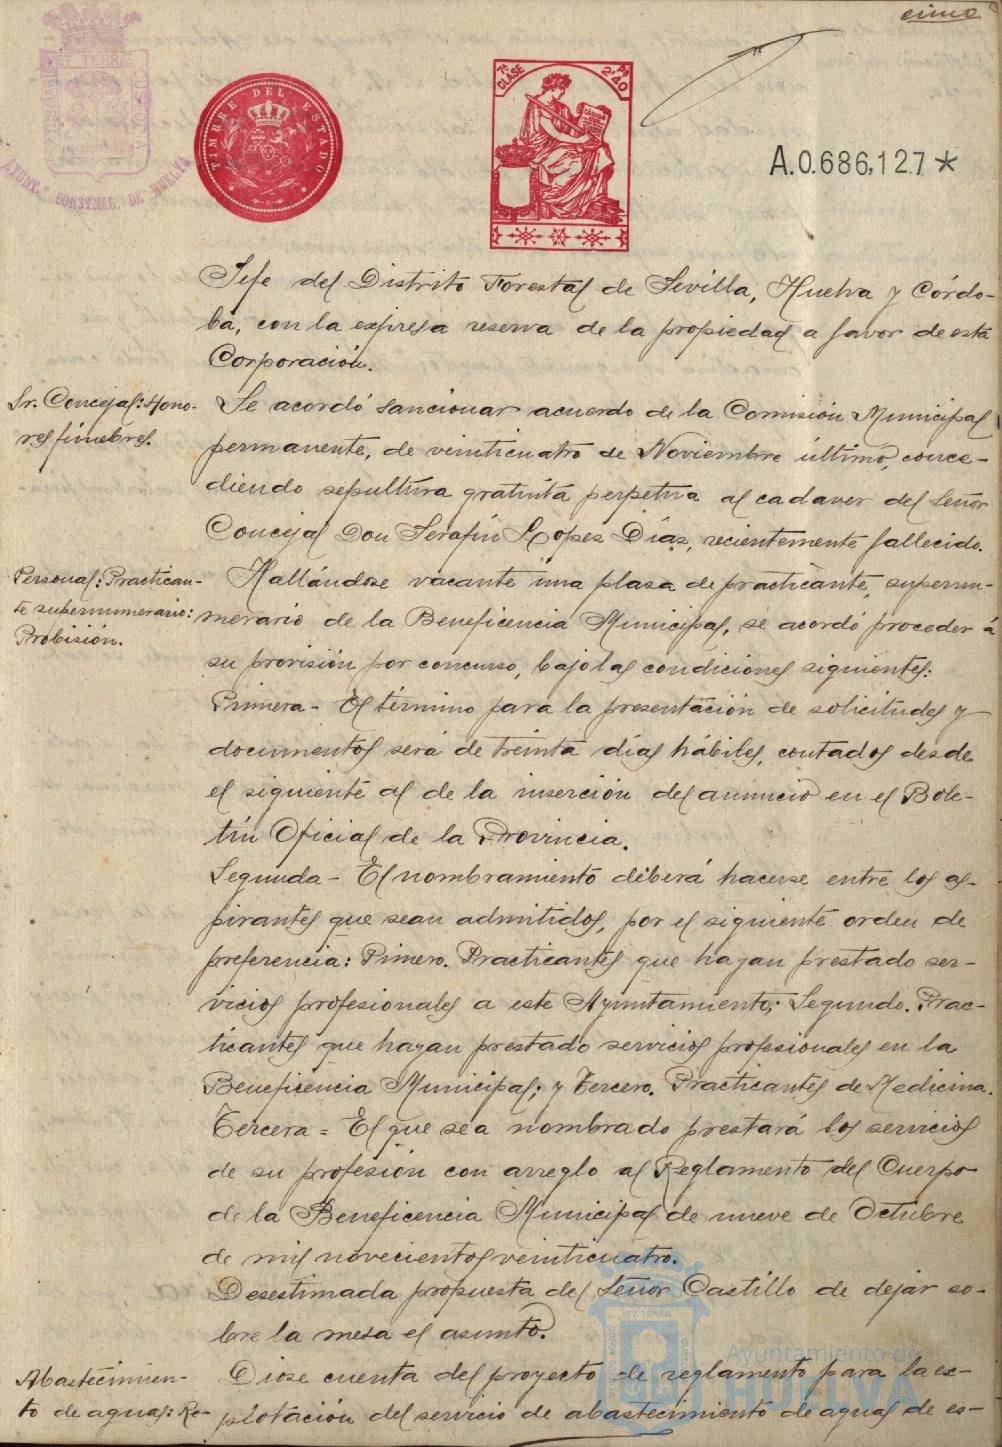 cinco
ET TERRAE
AYUNT.º CONSTNAL. DE HUELVA
TIMBRE DEL ESTADO
7ª CLASE
2'40
A.0.686,127*
Jefe del Distrito Forestal de Sevilla, Huelva y Córdo-
ba, con la expresa reserva de la propiedad a favor de esta
Corporación.
Sr. Concejal: Hono-
res fúnebres.
Se acordó sancionar acuerdo de la Comisión Municipal
permanente, de veinticuatro de Noviembre último, conce-
diendo sepultura gratuita perpetua al cadaver del Señor
Concejal Don Serafín Lopez Díaz, recientemente fallecido.
Personal: Practican-
te supernumerario:
Probisión.
Hallándose vacante una plaza de practicante, supernu-
merario de la Beneficencia Municipal, se acordó proceder á
su provisión por concurso, bajo las condiciones siguientes:
Primera - El término para la presentación de solicitudes y
documentos será de treinta días hábiles, contados desde
el siguiente al de la inserción del anuncio en el Bole-
tín Oficial de la Provincia.
Segunda - El nombramiento deberá hacerse entre los as-
pirantes que sean admitidos, por el siguiente orden de
preferencia: Pimero. Practicantes que hayan prestado ser-
vicios profesionales a este Ayuntamiento; Segundo. Prac-
ticantes que hayan prestado servicios profesionales en la
Beneficencia Municipal; y Tercero. Practicantes de Medicina.
Tercera = El que sea nombrado prestará los servicios
de su profesión con arreglo al Reglamento del Cuerpo
de la Beneficencia Municipal de nueve de Octubre
de mil novecientos veinticuatro.
Desestimada propuesta del Señor Castillo de dejar so-
bre la mesa el asunto.
Abastecimien-
to de aguas: Re-
Diose cuenta del proyecto de reglamento para la ex-
plotación del servicio de abastecimiento de aguas de es-
Ayuntamiento de
HUELVA